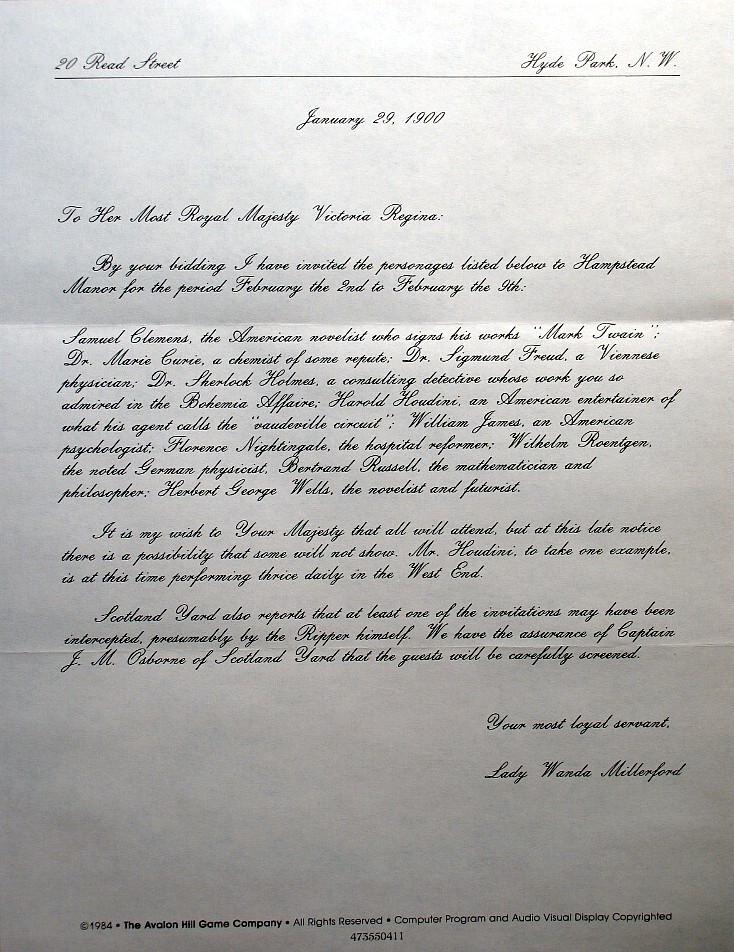 20 Read Street Hyde Park, N. W.
January 29, 1900
To Her Most Royal Majesty Victoria Regina:
By your bidding I have invited the personages listed below to Hampstead
Manor for the period February the 2nd to February the 9th:
Samuel Clemens, the American novelist who signs his works "Mark Twain";
Dr. Marie Curie, a chemist of some repute; Dr. Sigmund Freud, a Viennese
physician; Dr. Sherlock Holmes, a consulting detective whose work you so
admired in the Bohemia Affaire; Harold Houdini, an American entertainer of
what his agent calls the "vaudeville circuit"; William James, an American
psychologist; Florence Nightingale, the hospital reformer; Wilhelm Roentgen,
the noted German physicist, Bertrand Russell, the mathematician and
philosopher; Herbert George Wells, the novelist and futurist.
It is my wish to Your Majesty that all will attend, but at this late notice
there is a possibility that some will not show. Mr. Houdini, to take one example,
is at this time performing thrice daily in the West End.
Scotland Yard also reports that at least one of the invitations may have been
intercepted, presumably by the Ripper himself. We have the assurance of Captain
J. M. Osborne of Scotland Yard that the guests will be carefully screened.
Your most loyal servant,
Lady Wanda Millerford
©1984 • The Avalon Hill Game Company • All Rights Reserved • Computer Program and Audio Visual Display Copyrighted
473550411